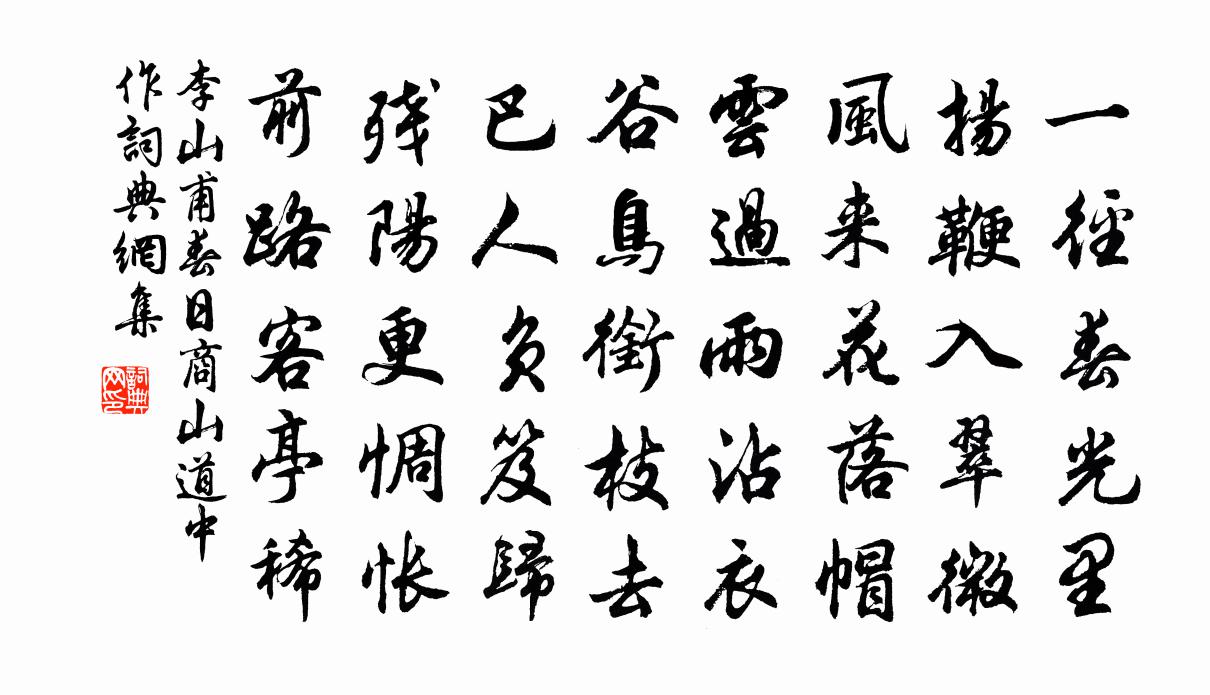 一徑春光里
揚鞭入翠微
風来花落帽
雲過雨沾衣
谷鳥銜枝去
巴人負笈歸
残陽更惆怅
前路客亭稀
李山甫春日商山道中
作詞典網集
詞典
网印